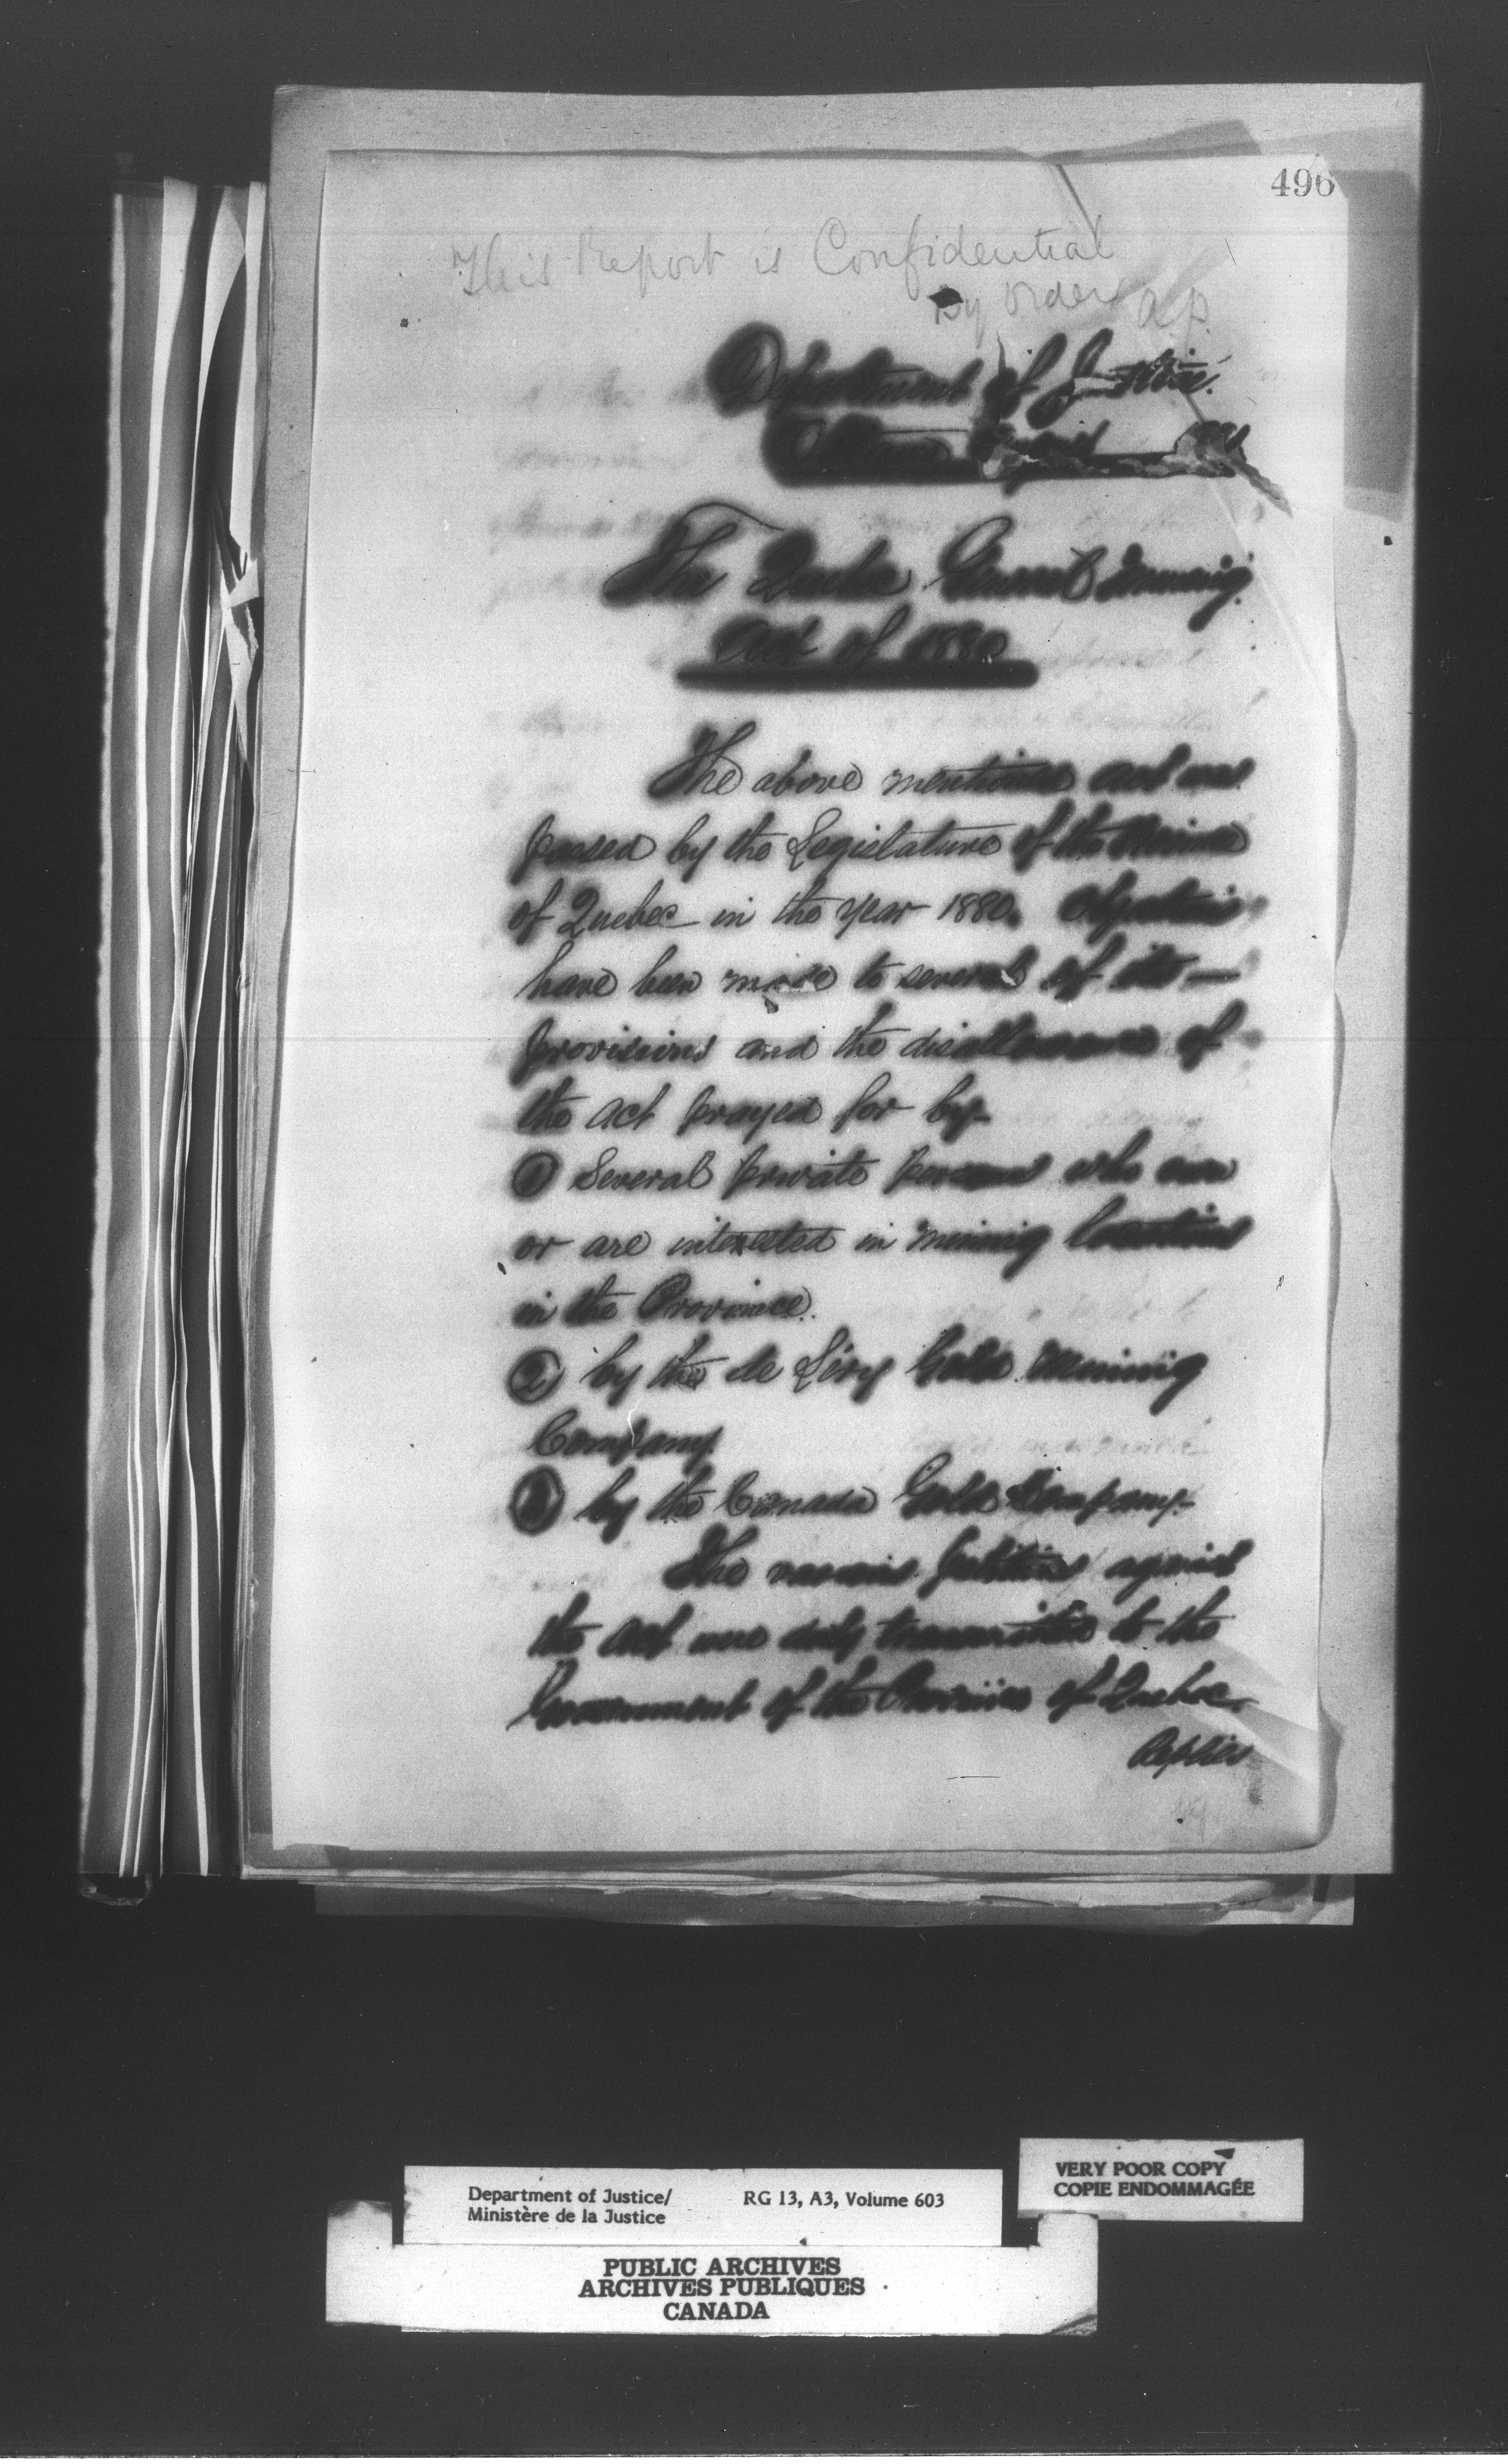 496
This Report is Confidential
By order A.P.
Department of Justice
Ottawa
The Quebec General Mining
Act of 1880
The above mentioned act was
passed by the Legislature of the Province
of Quebec in the year 1880. Objections
have been made to several of its
provisions and the disallowance of
the act prayed for by
① Several private persons who own
or are interested in mining locations
in the Province.
② by the de Léry Gold Mining
Company.
③ by the Canada Gold Company.
The various petitions against
the act were duly transmitted to the
Government of the Province of Quebec.
Replies
VERY POOR COPY
COPIE ENDOMMAGÉE
Department of Justice/ RG 13, A3, Volume 603
Ministère de la Justice
PUBLIC ARCHIVES
ARCHIVES PUBLIQUES
CANADA